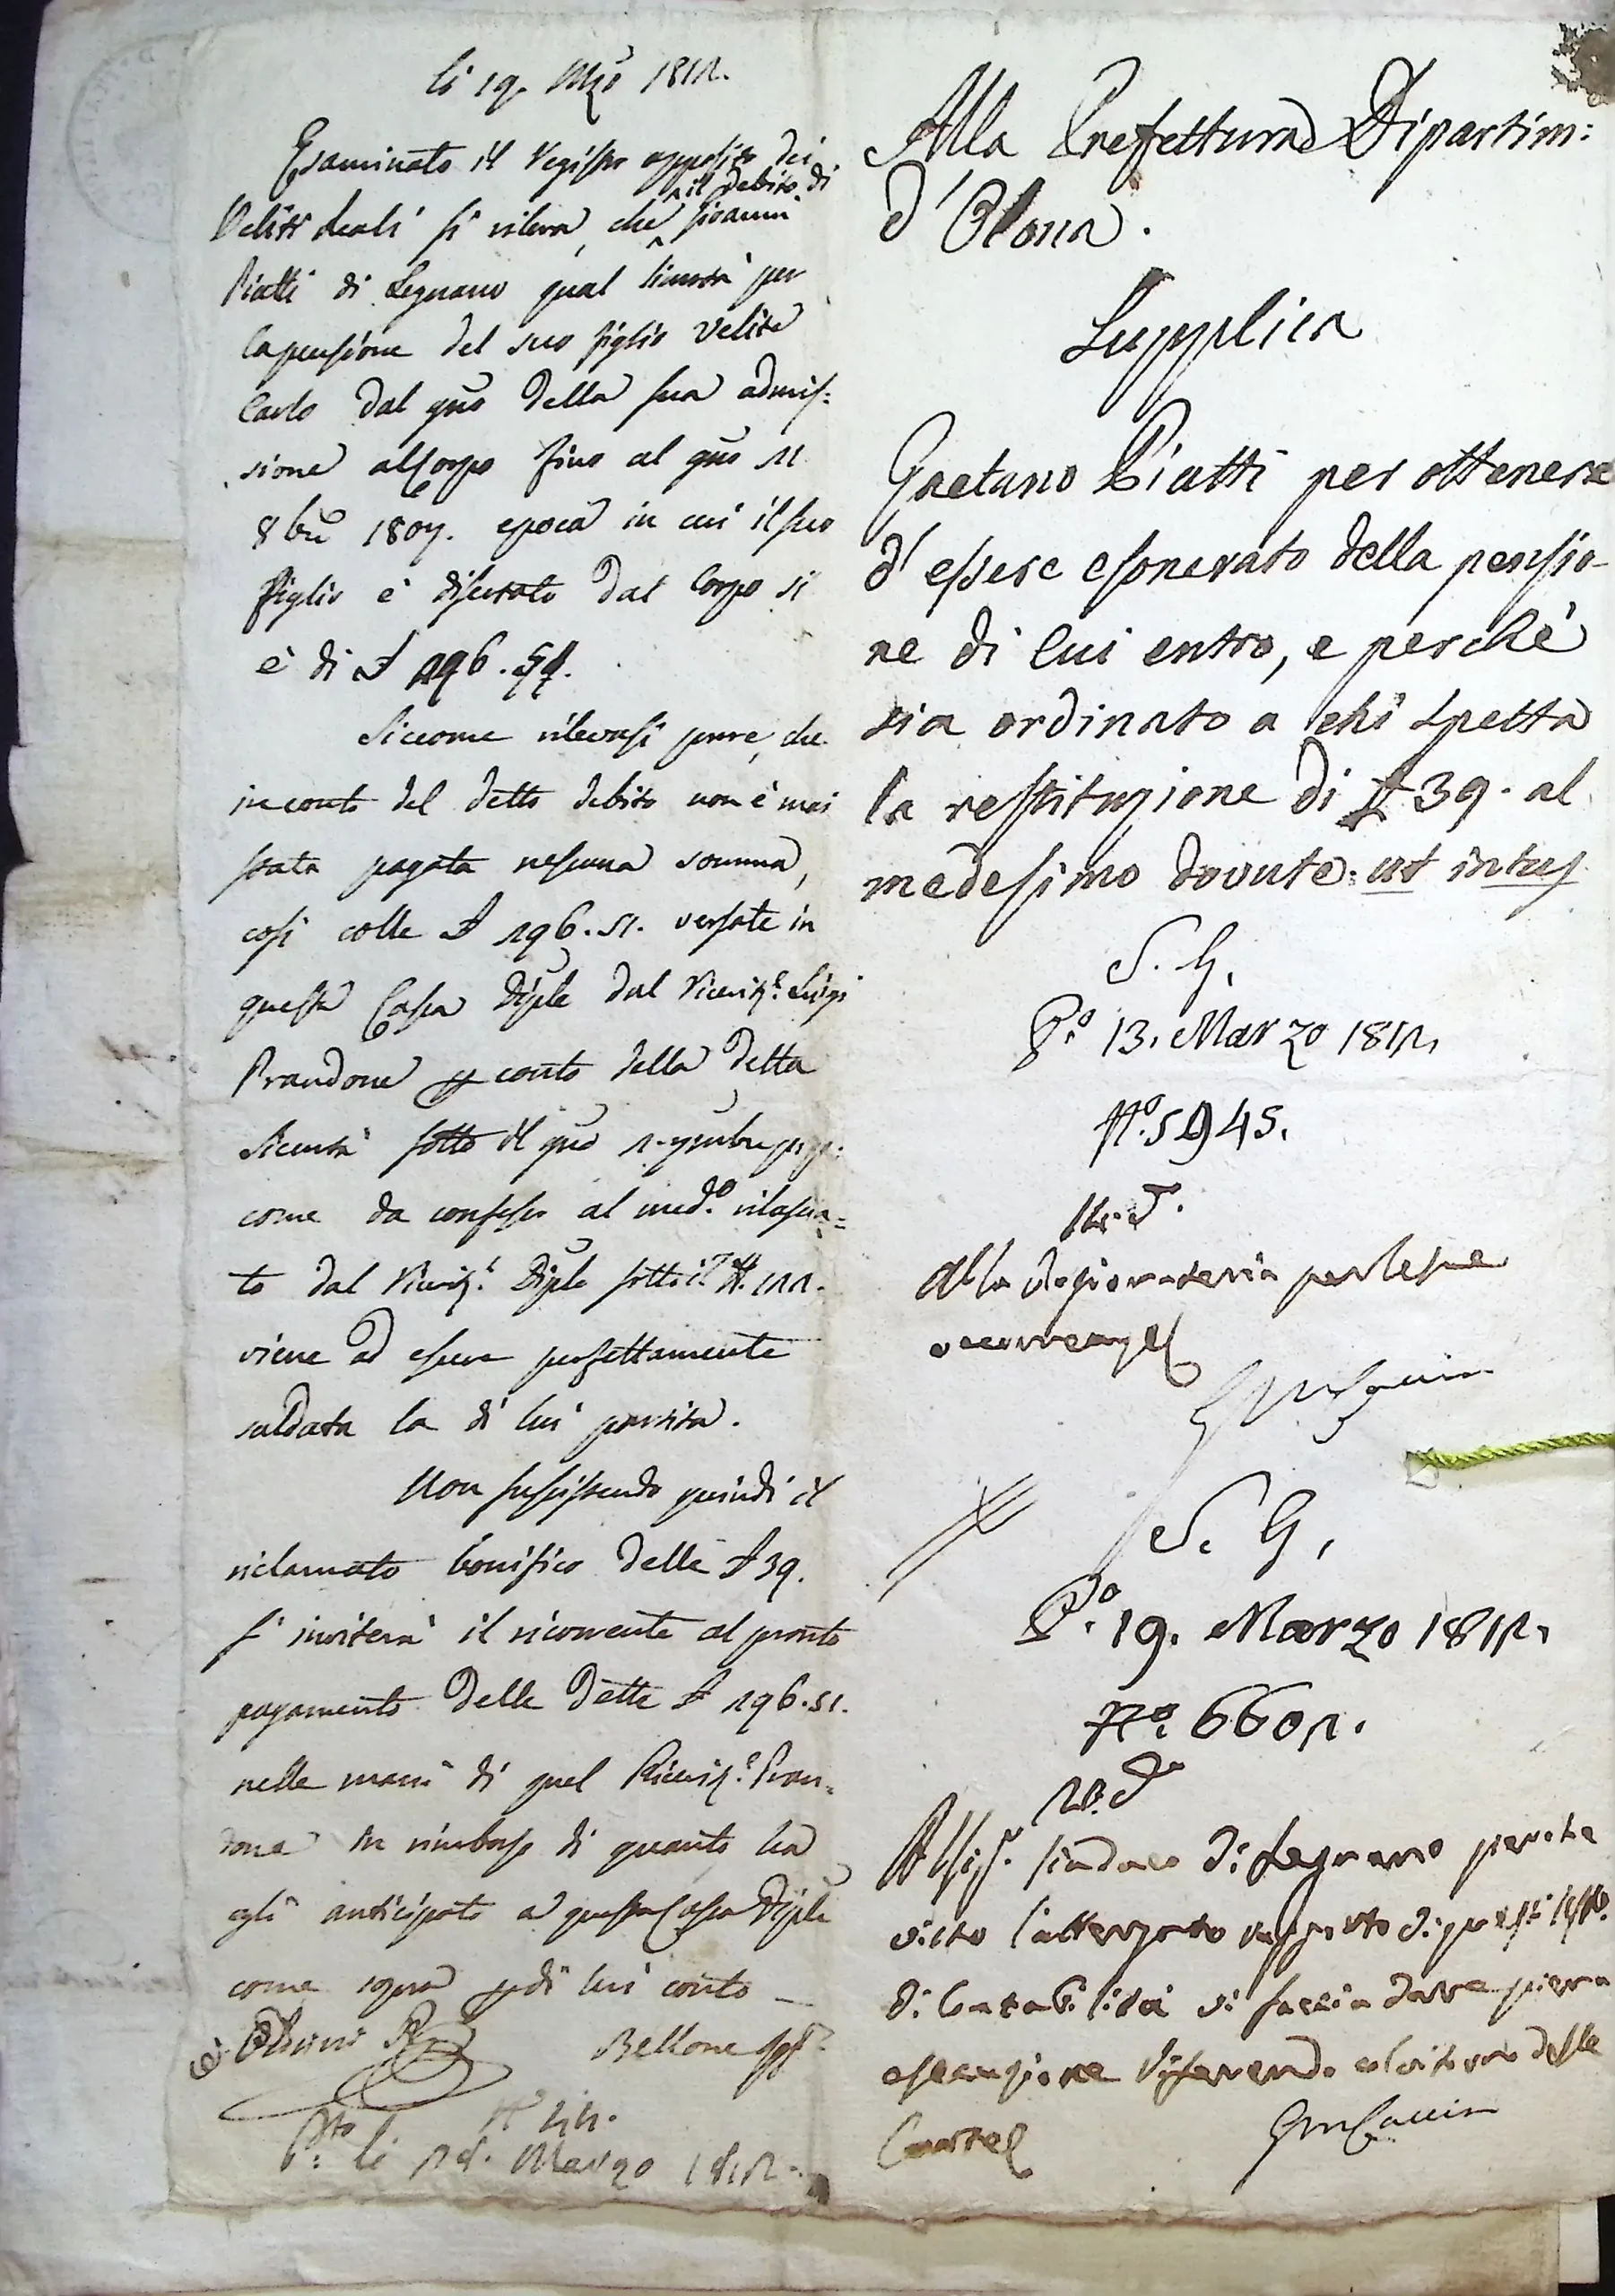 li 19. Mzo 1812.
Esaminato il Registro apposito dei
il debito di
Veliti Reali si rileva, che Gioanni
Piatti di Legnano qual sicurtà per
la pensione del suo figlio Velite
Carlo dal gno della sua admis:
sione al Corpo fino al gno 21
8bre 1807. epoca in cui il suo
figlio è disertato dal Corpo si
è di £ 296. 51.
Siccome rilevasi pure, che
in conto del detto debito non è mai
stata pagata nessuna somma,
così colle £ 296. 51. versate in
questa Cassa Diple dal Ricevit.e Luigi
Prandone per conto della detta
Sicurtà sotto il gno
come da confesso al med.o rilascia=
to dal Ricevit.e Diple sotto il N. 122.
viene ad essere perfettamente
saldata la di lui partita.
Non sussistendo quindi il
riclamato bonifico delle £ 39.
s'inviterà il ricorrente al pronto
pagamento delle dette £ 296. 51.
nelle mani di quel Ricevit.e Pran=
done in rimborso di quanto ha
egli anticipato a questa Cassa Diple
come sopra per di lui conto —
Bellone
P.to li 28. Marzo 1812.
Alla Prefettura Dipartim:
d'Olona.
Supplica
Gaetano Piatti per ottenere
d'essere esonerato della pensio-
ne di lui entro, e perchè
sia ordinato a chi spetta
la restituzione di £ 39. al
medesimo dovute. ut intus
S. G.
P.o 13. Marzo 1812.
N.o 5945.
14. d.o
Alla Ragionateria per le sue
occorrenze
S. G.
P.o 19. Marzo 1812.
N.o 6602.
20. d.o
Al Sig.r Sindaco di Legnano perche
visto l'attergato rapporto di
di Contabilità vi faccia dare piena
esecuzione riferendo col ritorno delle
Carte